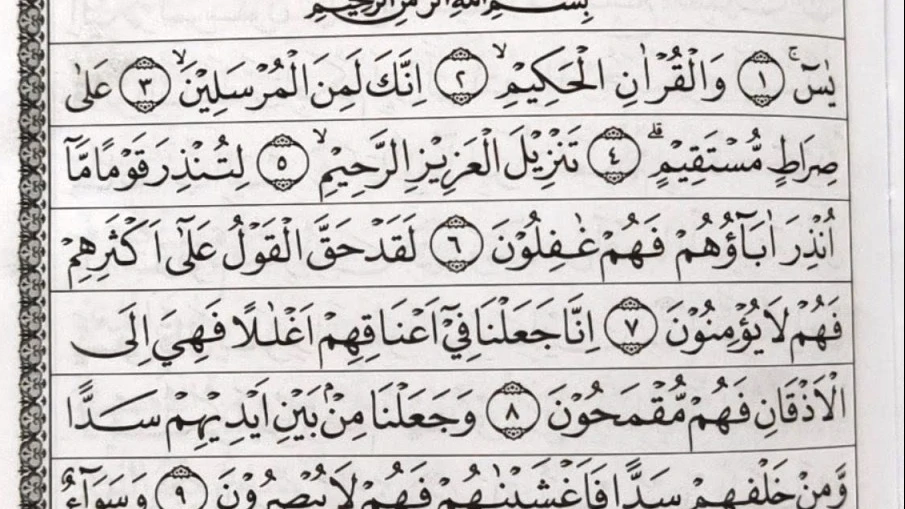 بِسْمِ اللّٰهِ الرَّحْمٰنِ الرَّحِيْمِ
يٰسۤ ۚ ﴿١﴾ وَالْقُرْاٰنِ الْحَكِيْمِۙ ﴿٢﴾ اِنَّكَ لَمِنَ الْمُرْسَلِيْنَۙ ﴿٣﴾ عَلٰى
صِرَاطٍ مُّسْتَقِيْمٍۗ ﴿٤﴾ تَنْزِيْلَ الْعَزِيْزِ الرَّحِيْمِۙ ﴿٥﴾ لِتُنْذِرَ قَوْمًا مَّآ
اُنْذِرَ اٰبَاۤؤُهُمْ فَهُمْ غٰفِلُوْنَ ﴿٦﴾ لَقَدْ حَقَّ الْقَوْلُ عَلٰٓى اَكْثَرِهِمْ
فَهُمْ لَا يُؤْمِنُوْنَ ﴿٧﴾ اِنَّا جَعَلْنَا فِيْٓ اَعْنَاقِهِمْ اَغْلٰلًا فَهِيَ اِلَى
الْاَذْقَانِ فَهُمْ مُّقْمَحُوْنَ ﴿٨﴾ وَجَعَلْنَا مِنْۢ بَيْنِ اَيْدِيْهِمْ سَدًّا
وَّمِنْ خَلْفِهِمْ سَدًّا فَاَغْشَيْنٰهُمْ فَهُمْ لَا يُبْصِرُوْنَ ﴿٩﴾ وَسَوَاۤءٌ